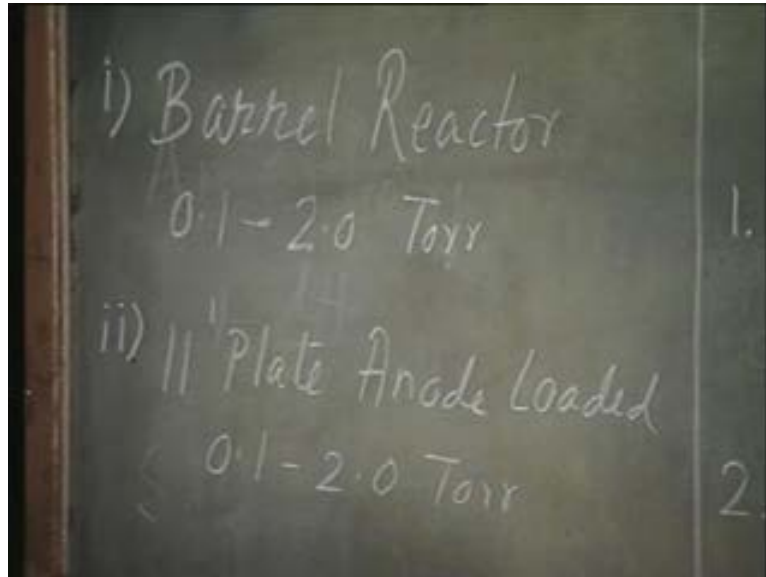 i) Barrel Reactor
0.1-2.0 Torr
ii) 11' Plate Anode Loaded
0.1-2.0 Torr
1.
2.